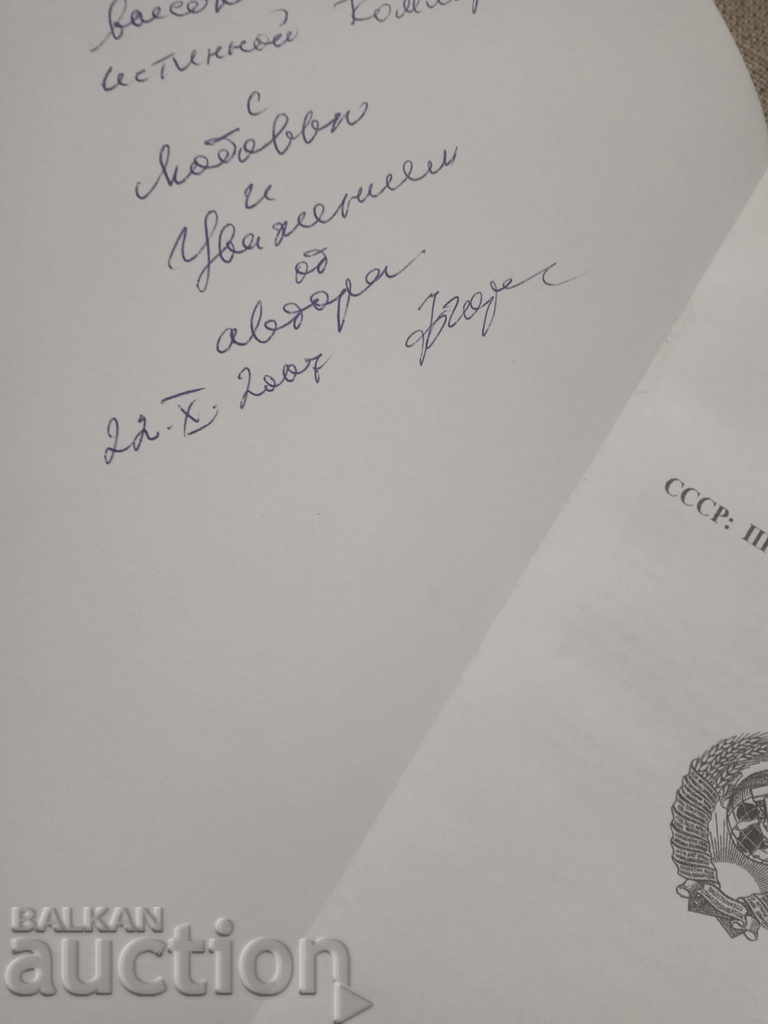 истинной
с
Любовью
и
Уважением
от
автора
22.X.2007
СССР:
BALKAN
auction